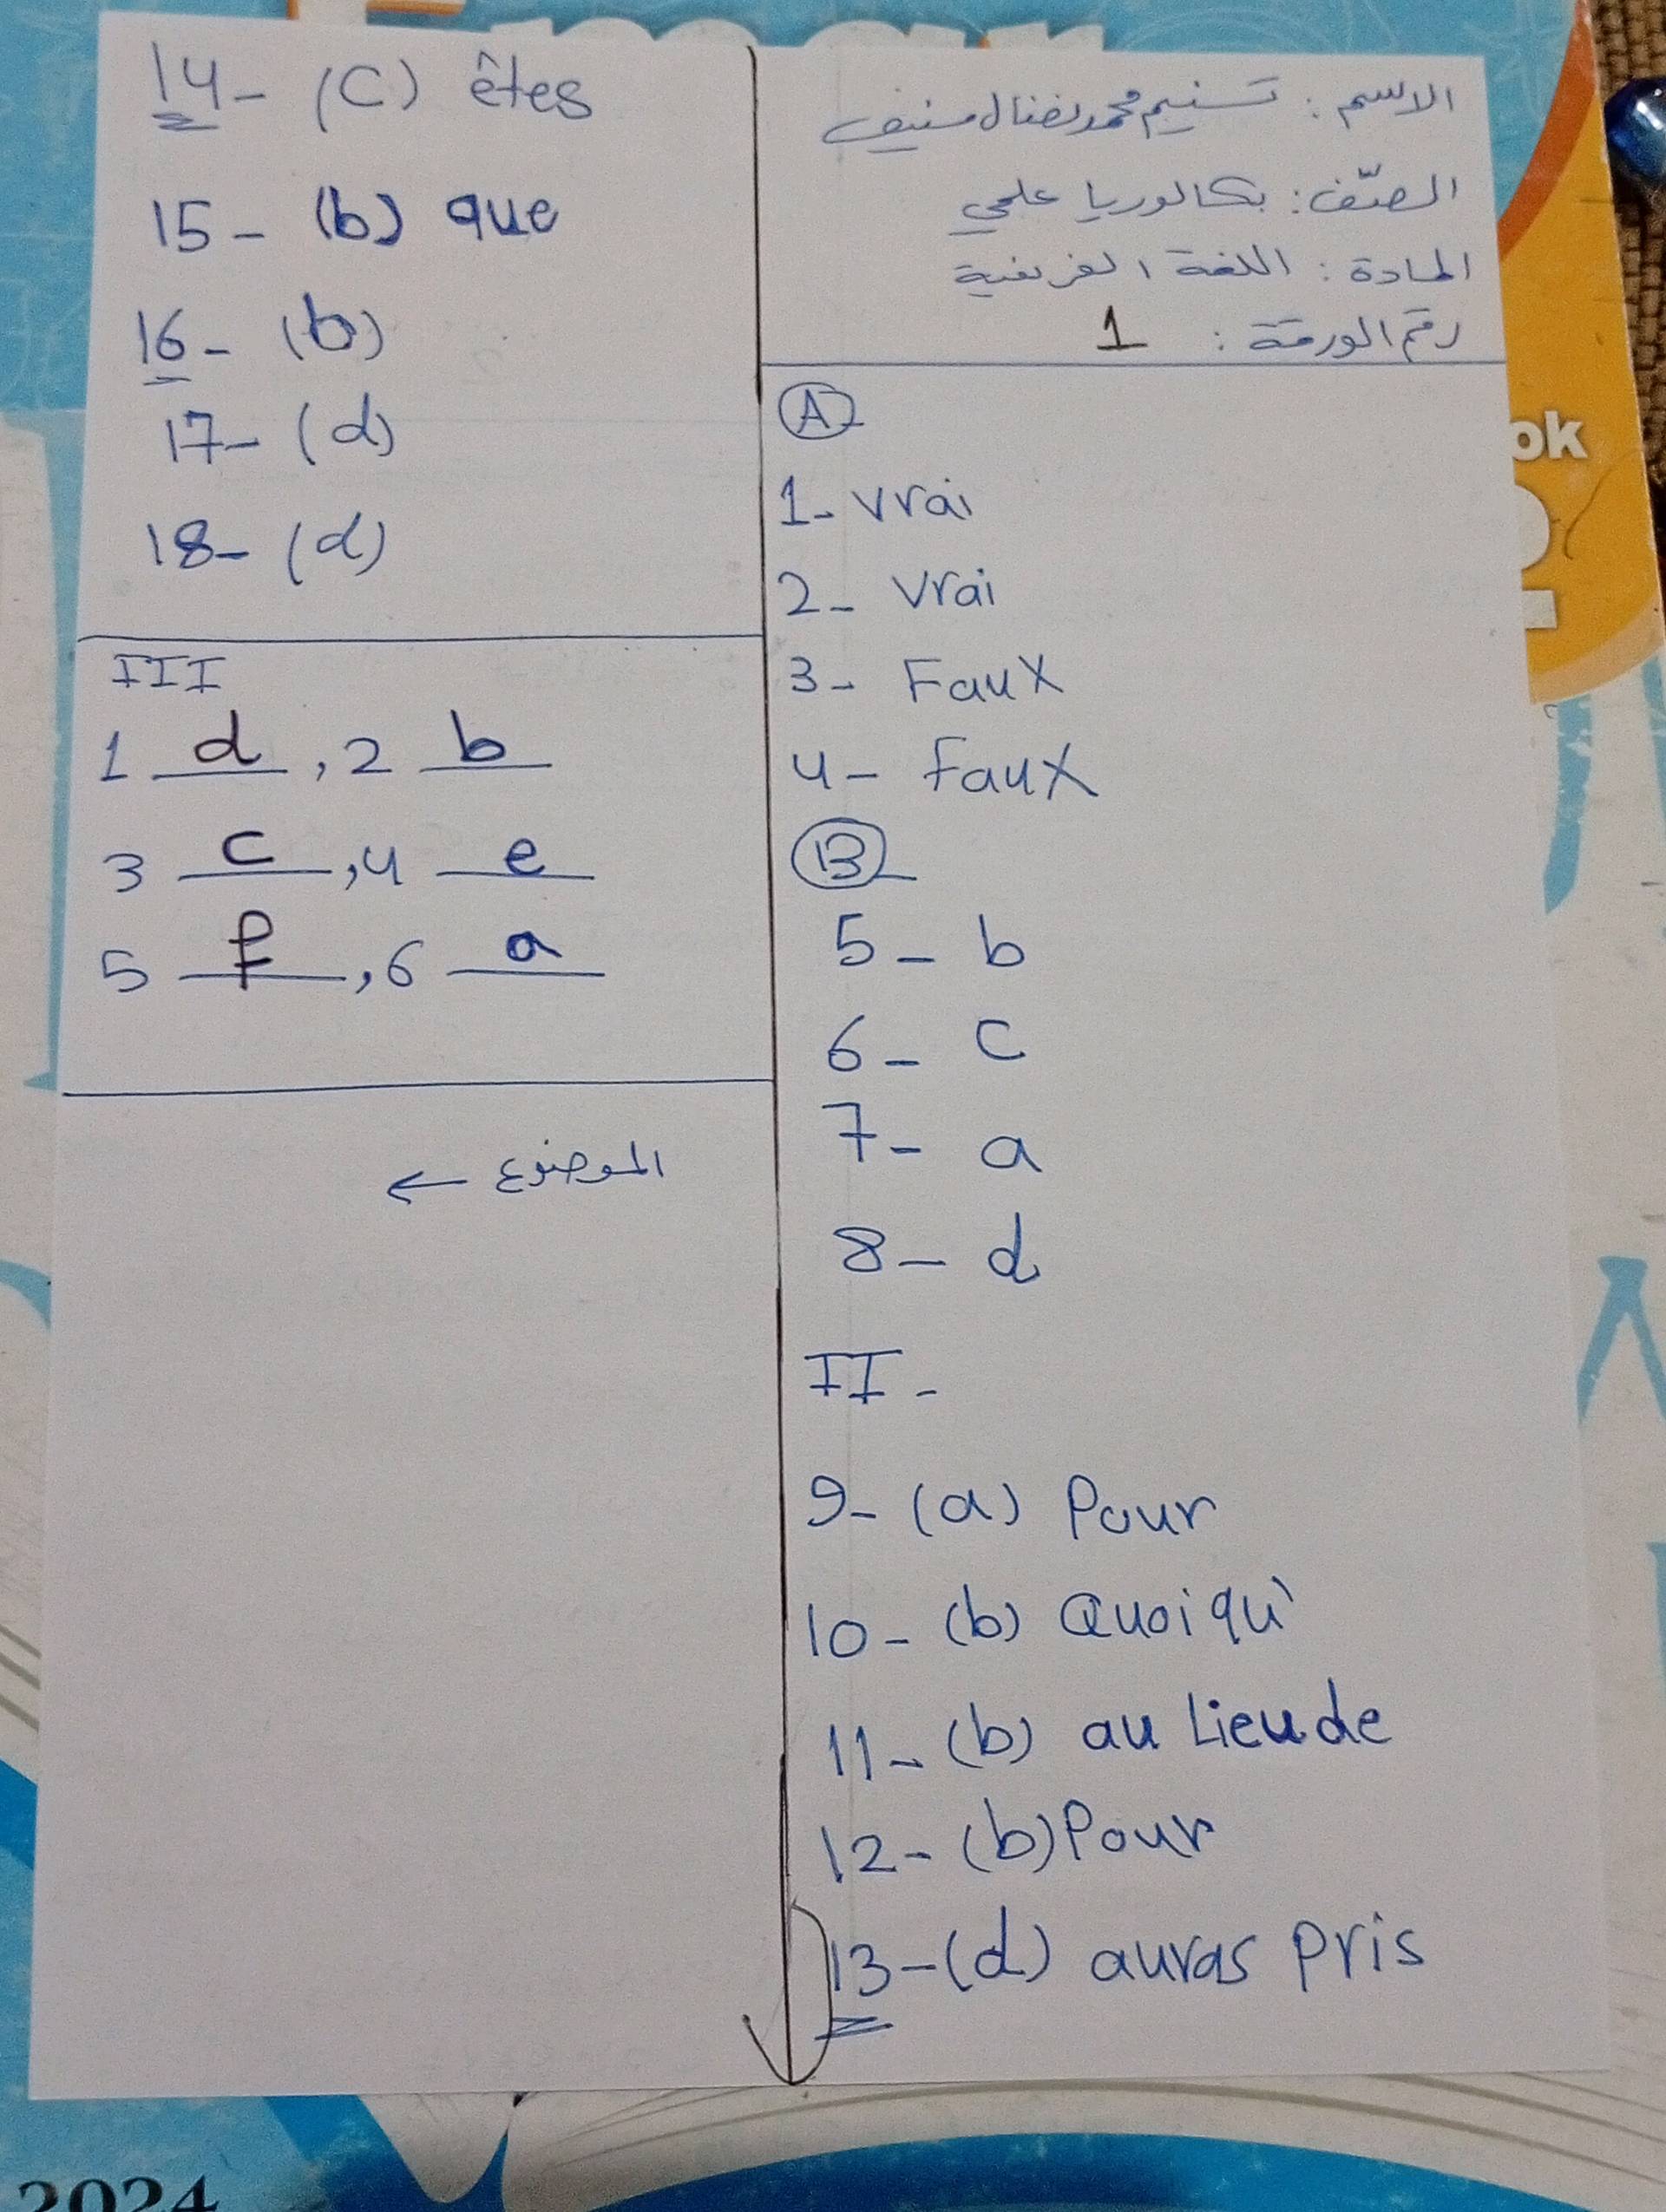 الاسم : تسنيم محمد نضال منيف
الصّف : بكالوريا علمي
المادة : اللغة الفرنسية
رقم الورقة : 1
A
1- vrai
2- vrai
3- Faux
4- Faux
B
5- b
6- c
7- a
8- d
II-
9- (a) Pour
10- (b) Quoiqu'
11- (b) au Lieu de
12- (b) Pour
13- (d) auras pris
14- (C) êtes
15- (b) que
16- (b)
17- (d)
18- (d)
III
1 d , 2 b
3 c , 4 e
5 f , 6 a
الموضوع ←
ok
2024